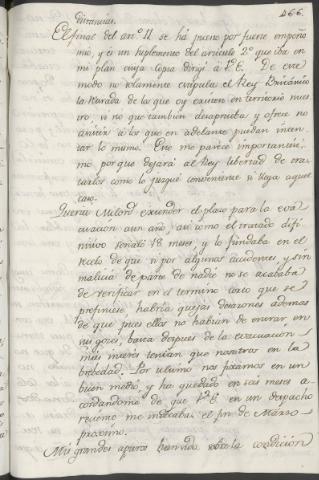 466.
distancias.
El final del art.º 11 se há puesto por fuerte empeño
mio, y és un suplemento del articulo 2º que iba en
mi plan cuya copia dirigí á V.E. De este
modo no solamente estipula el Rey Británico
la retirada de los que oy existen en territorio nues-
tro, si no que tambien desaprueba y ofrece no
asistir á los que en adelante puedan inten-
tar lo mismo. Esto me parece importantisi-
mo, porque dejará al Rey libertad de tra-
tarlos como lo juzgue conveniente si llega aquel
caso.
Queria Milord extender el plazo para la eva-
cuacion aun año, asi como el tratado difi-
nitivo señaló 18 meses, y lo fundaba en el
recelo de que si por algunos accidentes, y sin
malicia de parte de nadie no se acababa
de verificar en el termino corto que se
prefiniese, habria quejas y desazones ademas
de que pues ellos no habian de entrar en
sus goces, hasta despues de la evacuacion
mas interes tenian que nosotros en la
brebedad. Por ultimo nos fixamos en un
buen medio, y ha quedado en seis meses a-
cordandome de que V.E. en un despacho
reciente me indicaba el fin de Marzo
proximo.
Mis grandes apuros han sido sobre la condición